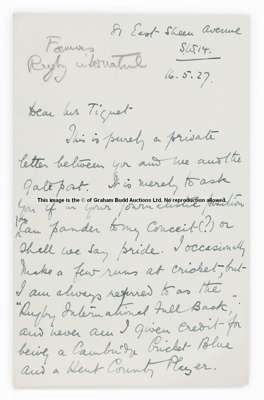 81 East Sheen Avenue
SW14.
16.5.27.
Famous
Rugby international
Dear Mr Tignet
This is purely a private
letter between you and me and the
gate post. It is merely to ask
This image is the © of Graham Budd Auctions Ltd. No reproduction without permission.
you if in your journalistic
can pander to my Conceit (?) or
shall we say pride. I occasionally
make a few runs at cricket, but
I am always referred to as the
"Rugby International Full Back,"
and never am I given credit for
being a Cambridge Cricket Blue
and a Kent County Player.